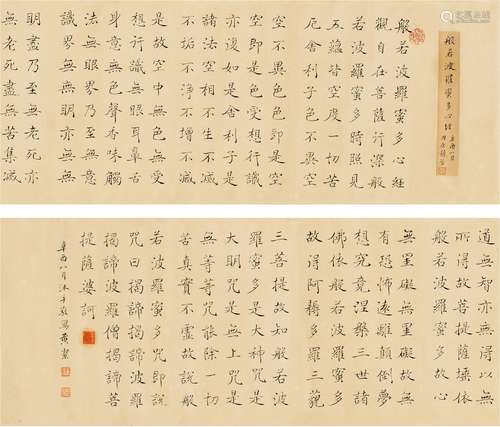 般若波羅蜜多心經
辛酉八月
般若波羅蜜多心經
觀自在菩薩行深般
若波羅蜜多時照見
五蘊皆空度一切苦
厄舍利子色不異
空不異色色即是空
空即是色受想行識
亦復如是舍利子是
諸法空相不生不滅
不垢不淨不增不減
是故空中無色無受
想行識無眼耳鼻舌
身意無色聲香味觸
法無眼界乃至無意
識界無無明亦無無
明盡乃至無老死亦
無老死盡無苦集滅
道無智亦無得以無
所得故菩提薩埵依
般若波羅蜜多故心
無罣礙無罣礙故無
有恐怖遠離顛倒夢
想究竟涅槃三世諸
佛依般若波羅蜜多
故得阿耨多羅三藐
三菩提故知般若波
羅蜜多是大神咒是
大明咒是無上咒是
無等等咒能除一切
苦真實不虛故說般
若波羅蜜多咒即說
咒曰揭諦揭諦波羅
揭諦波羅僧揭諦菩
提薩婆訶
辛酉八月沐手敬寫黃